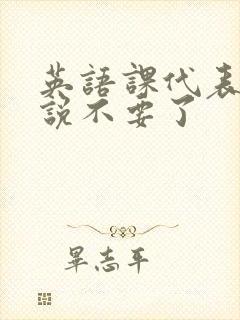 英語課代表
說不要了
畢志平